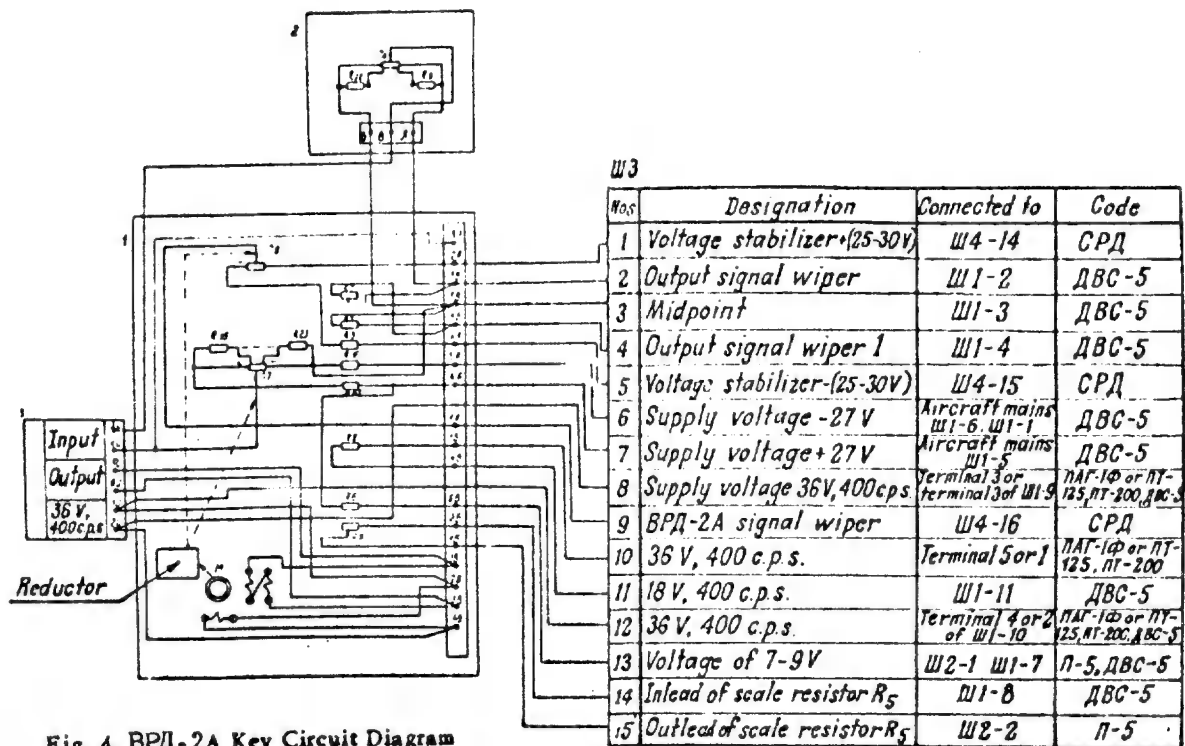 2
1
Input
Output
36 V,
400 c.p.s
Reductor
Ш3
Nos Designation Connected to Code
1 Voltage stabilizer+(25-30V) Ш4-14 СРД
2 Output signal wiper Ш1-2 ДВС-5
3 Midpoint Ш1-3 ДВС-5
4 Output signal wiper 1 Ш1-4 ДВС-5
5 Voltage stabilizer-(25-30V) Ш4-15 СРД
6 Supply voltage -27 V Aircraft mains Ш1-6, Ш1-1 ДВС-5
7 Supply voltage +27 V Aircraft mains Ш1-5 ДВС-5
8 Supply voltage 36V, 400cps. Terminal 3 or terminal 3 of Ш1-9 ПАГ-1Ф or ПТ-125, ПТ-200, ДВС-5
9 ВРД-2А signal wiper Ш4-16 СРД
10 36 V, 400 c.p.s. Terminal 5 or 1 ПАГ-1Ф or ПТ-125, ПТ-200
11 18 V, 400 c.p.s. Ш1-11 ДВС-5
12 36 V, 400 c.p.s. Terminal 4 or 2 of Ш1-10 ПАГ-1Ф or ПТ-125, ПТ-200, ДВС-5
13 Voltage of 7-9V Ш2-1 Ш1-7 П-5, ДВС-5
14 Inlead of scale resistor R5 Ш1-8 ДВС-5
15 Outlead of scale resistor R5 Ш2-2 П-5
Fig. 4. ВРД-2А Key Circuit Diagram